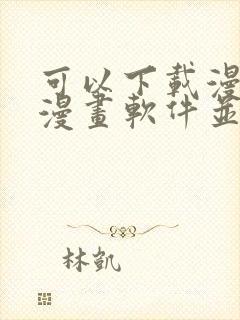 可以下載漫
漫畫軟件並
林凱